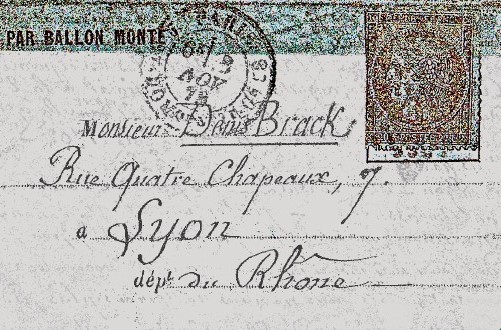 PAR BALLON MONTÉ
PARIS
NOV
Monsieur Denis Brack
Rue Quatre Chapeaux, 7.
a Lyon
dépt. du Rhône